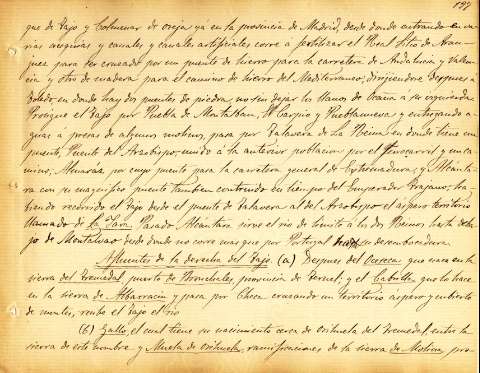 197
que de Tajo y Colmenar de oreja ya en la provincia de Madrid, desde donde entrando en va-
rias acequias y canales y canales artificiales corre á fertilizar el Real Sitio de Aran-
juez para ser cruzado por un puente de hierro para la carretera de Andalucia y Valen-
cia y otro de madera para el camino de hierro del Mediterraneo; dirijiendose despues á
Toledo, en donde hay dos puentes de piedra, no sin dejar los llanos de Ocaña á su izquierda
Prosigue el Tajo por Puebla de Montalban, El Carpio y Pueblanueva y entregando a-
guas á presas de algunos molinos, pasa por Talavera de la Reina en donde tiene un
puente, Puente del Arzobispo, unido á la anterior poblacion por el ferrocarril y un ca-
mino, Almaraz por cuyo puente pasa la carretera general de Extremadura; y Alcánta-
ra con su magnifico puente tambien construido en tiempo del Emperador Trajano, ha-
biendo recorrido el Tajo desde el puente de Talavera al del Arzobispo el aspero territorio
llamado de la Jara. Pasado Alcántara sirve el rio de limite á los dos Reinos hasta deba-
jo de Montalvao desde donde no corre mas que por Portugal hasta su desembocadura.
Afluentes de la derecha del Tajo. (a) Despues del que nace en la
sierra del Tremedal, puerto de Bronchales, provincia de Teruel, y el Cabrilla, que lo hace
en la sierra de Albarracin y pasa por Checa cruzando un territorio aspero y cubierto
de montes, recibe el Tajo el rio
(b) Gallo, el cual tiene su nacimiento cerca de Orihuela del Tremedal, entre la
sierra de este nombre y Muela de Orihuela, ramificaciones de la sierra de Molina, pro-